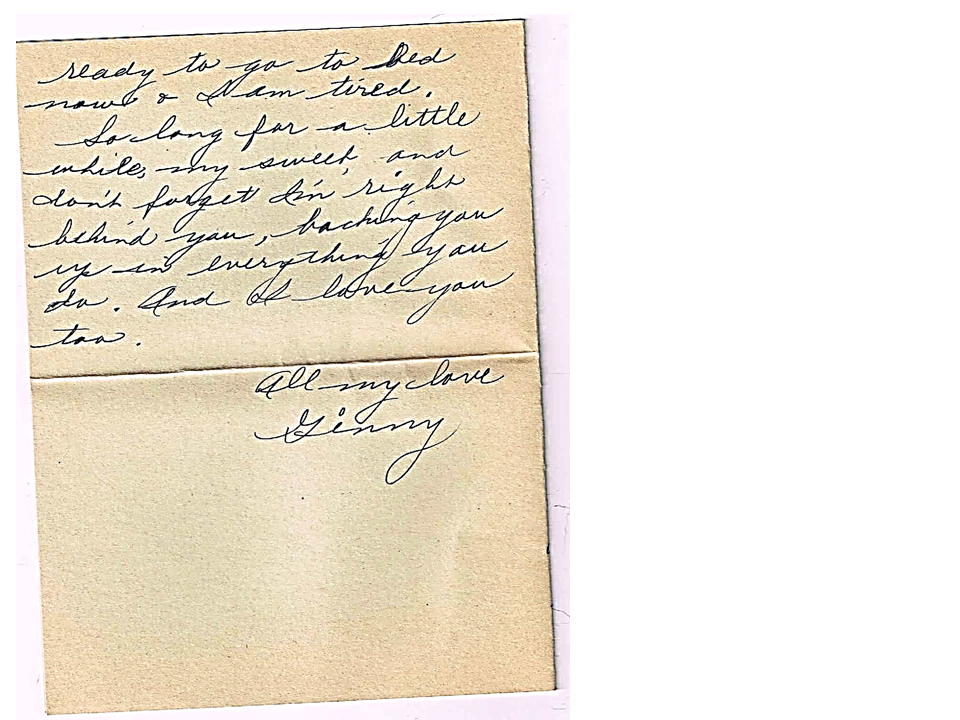 ready to go to bed
now & I am tired.
So long for a little
while, my sweet, and
don't forget I'm right
behind you, backing you
up in everything you
do. And I love you
too.
All my love
Ginny